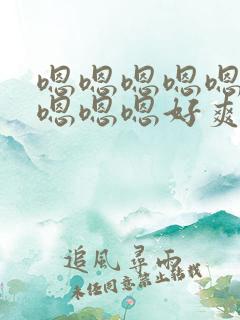 嗯嗯嗯嗯嗯
嗯嗯嗯好爽
追風尋雨
未经同意禁止转载